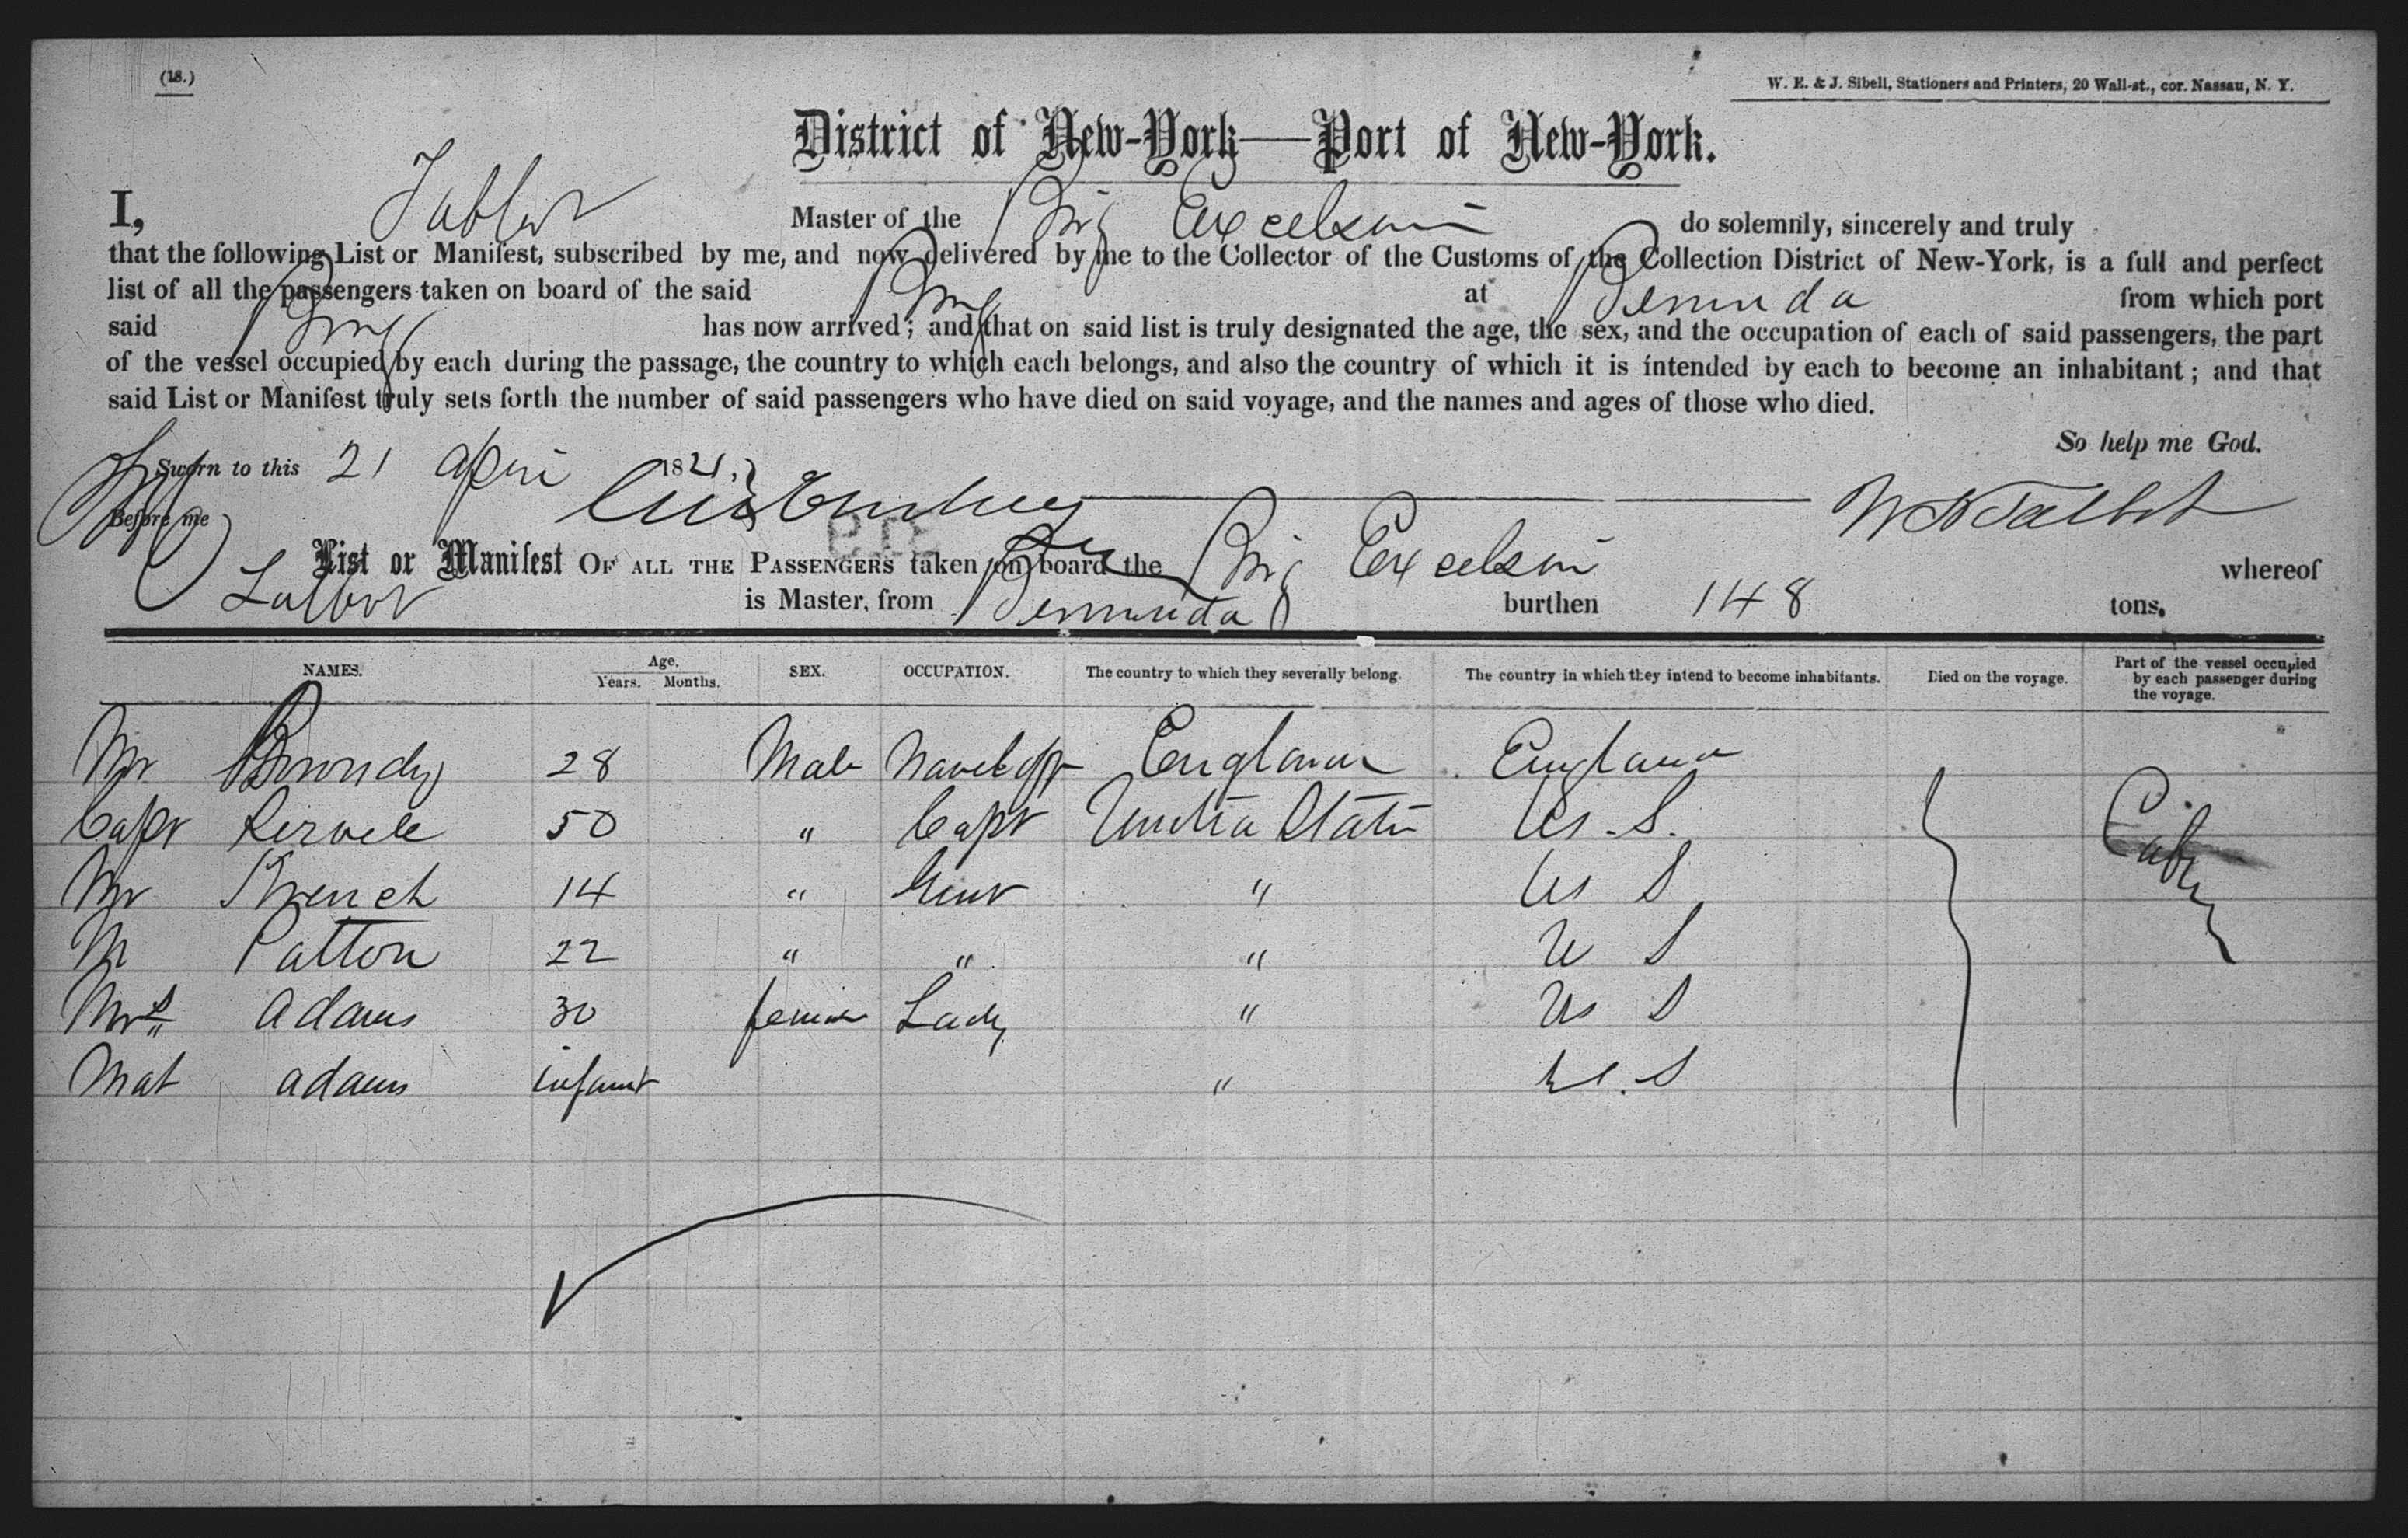 (18.)
W. E. & J. Sibell, Stationers and Printers, 20 Wall-st., cor. Nassau, N. Y.
District of New-York—Port of New-York.
I, Talbot Master of the Brig Excelsior do solemnly, sincerely and truly
that the following List or Manifest, subscribed by me, and now delivered by me to the Collector of the Customs of the Collection District of New-York, is a full and perfect
list of all the passengers taken on board of the said Brig at Bermuda from which port
said Brig has now arrived; and that on said list is truly designated the age, the sex, and the occupation of each of said passengers, the part
of the vessel occupied by each during the passage, the country to which each belongs, and also the country of which it is intended by each to become an inhabitant; and that
said List or Manifest truly sets forth the number of said passengers who have died on said voyage, and the names and ages of those who died.
So help me God.
Sworn to this 21 April 18
Before me W H Talbot
List or Manifest OF ALL THE PASSENGERS taken on board the Brig Excelsior whereof
Talbot is Master, from Bermuda burthen 148 tons.
NAMES. Age. Years. Months. SEX. OCCUPATION. The country to which they severally belong. The country in which they intend to become inhabitants. Died on the voyage. Part of the vessel occupied by each passenger during the voyage.
Mr 28 Male Naval off England England
Capt 50 " Capt United States U. S. Cabin
Mr French 14 " Gent " U S
M Patton 22 " " " U S
Mrs Adams 30 female Lady " U S
Mat Adams infant " U. S